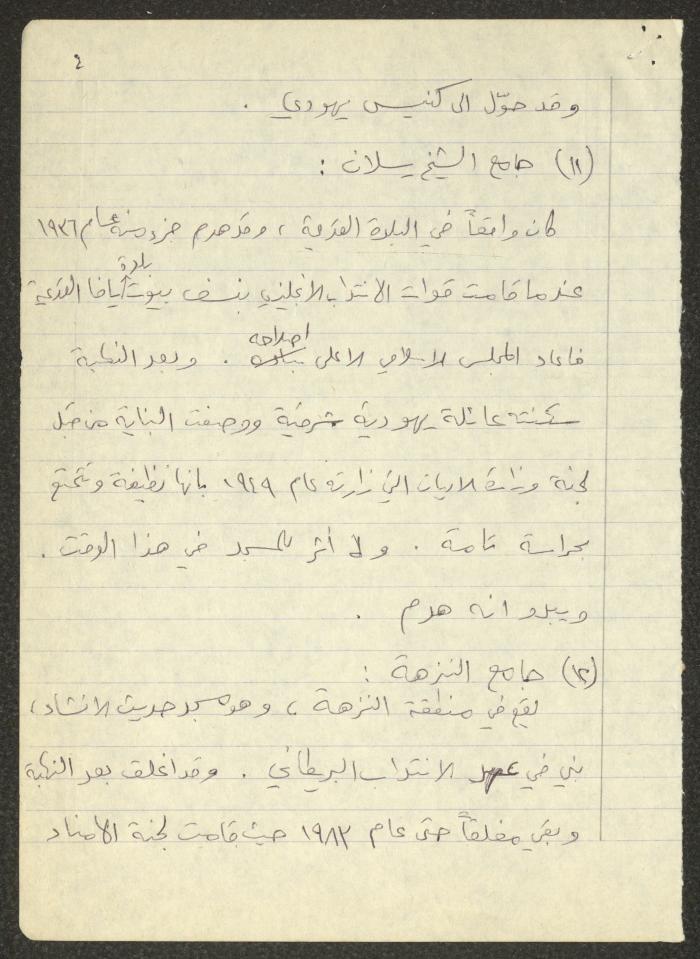 ٤
وقد حوّل الى كنيس يهودي .
(١١) جامع الشيخ رسلان :
كان واقعاً في البلدة القديمة ، وقد هدم جزء منه عام ١٩٣٦
بلدة
عندما قامت قوات الانتداب الانجليزي بنسف بيوت يافا القديمة
اصلاحه
فاعاد المجلس الاسلامي الاعلى بناءه . وبعد النكبة
سكنته عائلة يهودية شرقية ووصفت البناية من قبل
لجنة وزارة الاديان التي زارته عام ١٩٤٩ بانها نظيفة وتتمتع
بحراسة تامة . ولا أثر للمسجد في هذا الوقت .
ويبدو انه هدم .
(١٢) جامع النزهة :
يقع في منطقة النزهة ، وهو مسجد حديث الانشاء ،
بني في عهد الانتداب البريطاني . وقد اغلق بعد النكبة
وبقي مغلقاً حتى عام ١٩٨٣ حيث قامت لجنة الامناء